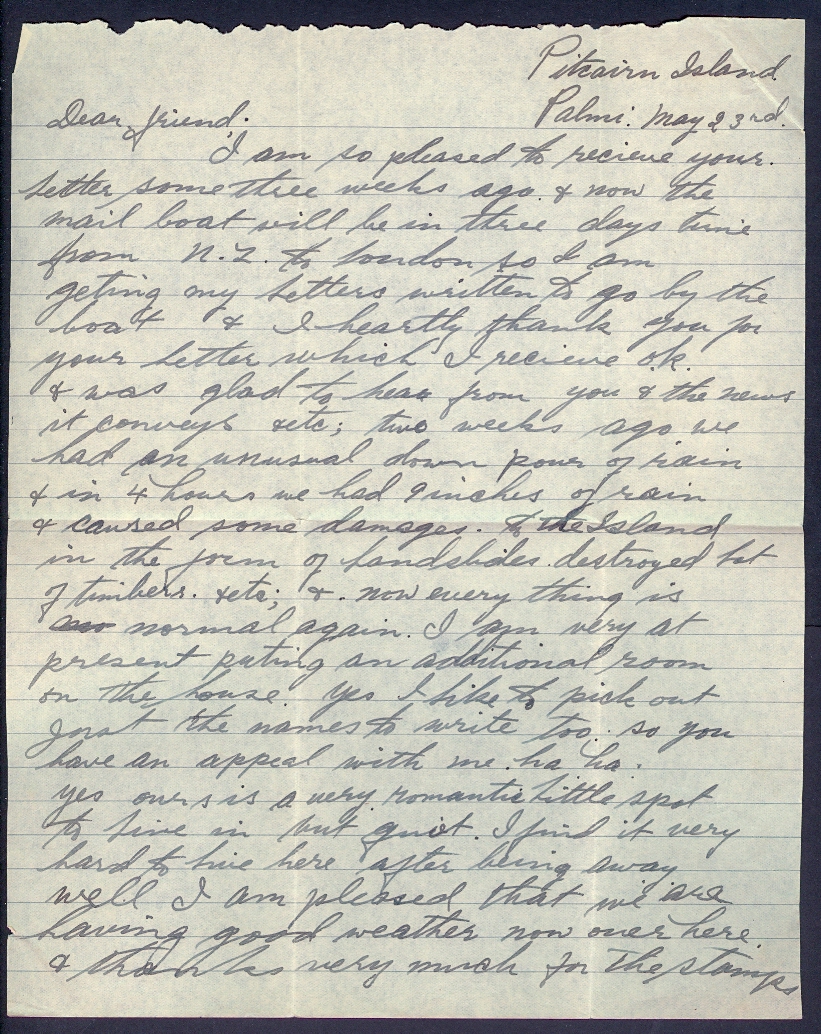 Pitcairn Island.
Palmi: May 23rd.
Dear friend;
I am so pleased to recieve your
letter some three weeks ago. & now the
mail boat will be in three days time
from N.Z. to London so I am
geting my letters written to go by the
boat & I heartly thank you for
your letter which I recieve ok.
& was glad to hear from you & the news
it conveys &etc; two weeks ago we
had an unusual down pour of rain
& in 4 hours we had 9 inches of rain
& caused some damages. to the Island
in the form of landslides. destroyed lot
of timbers. &etc; &. now every thing is
normal again. I am very at
present puting an additional room
on the house. yes I like to pick out
just the names to write too. so you
have an appeal with me. ha ha.
yes ours is a very romantic little spot
to live in but quiet. I find it very
hard to live here after being away
well I am pleased that we are
having good weather now over here.
& thanks very much for the stamps